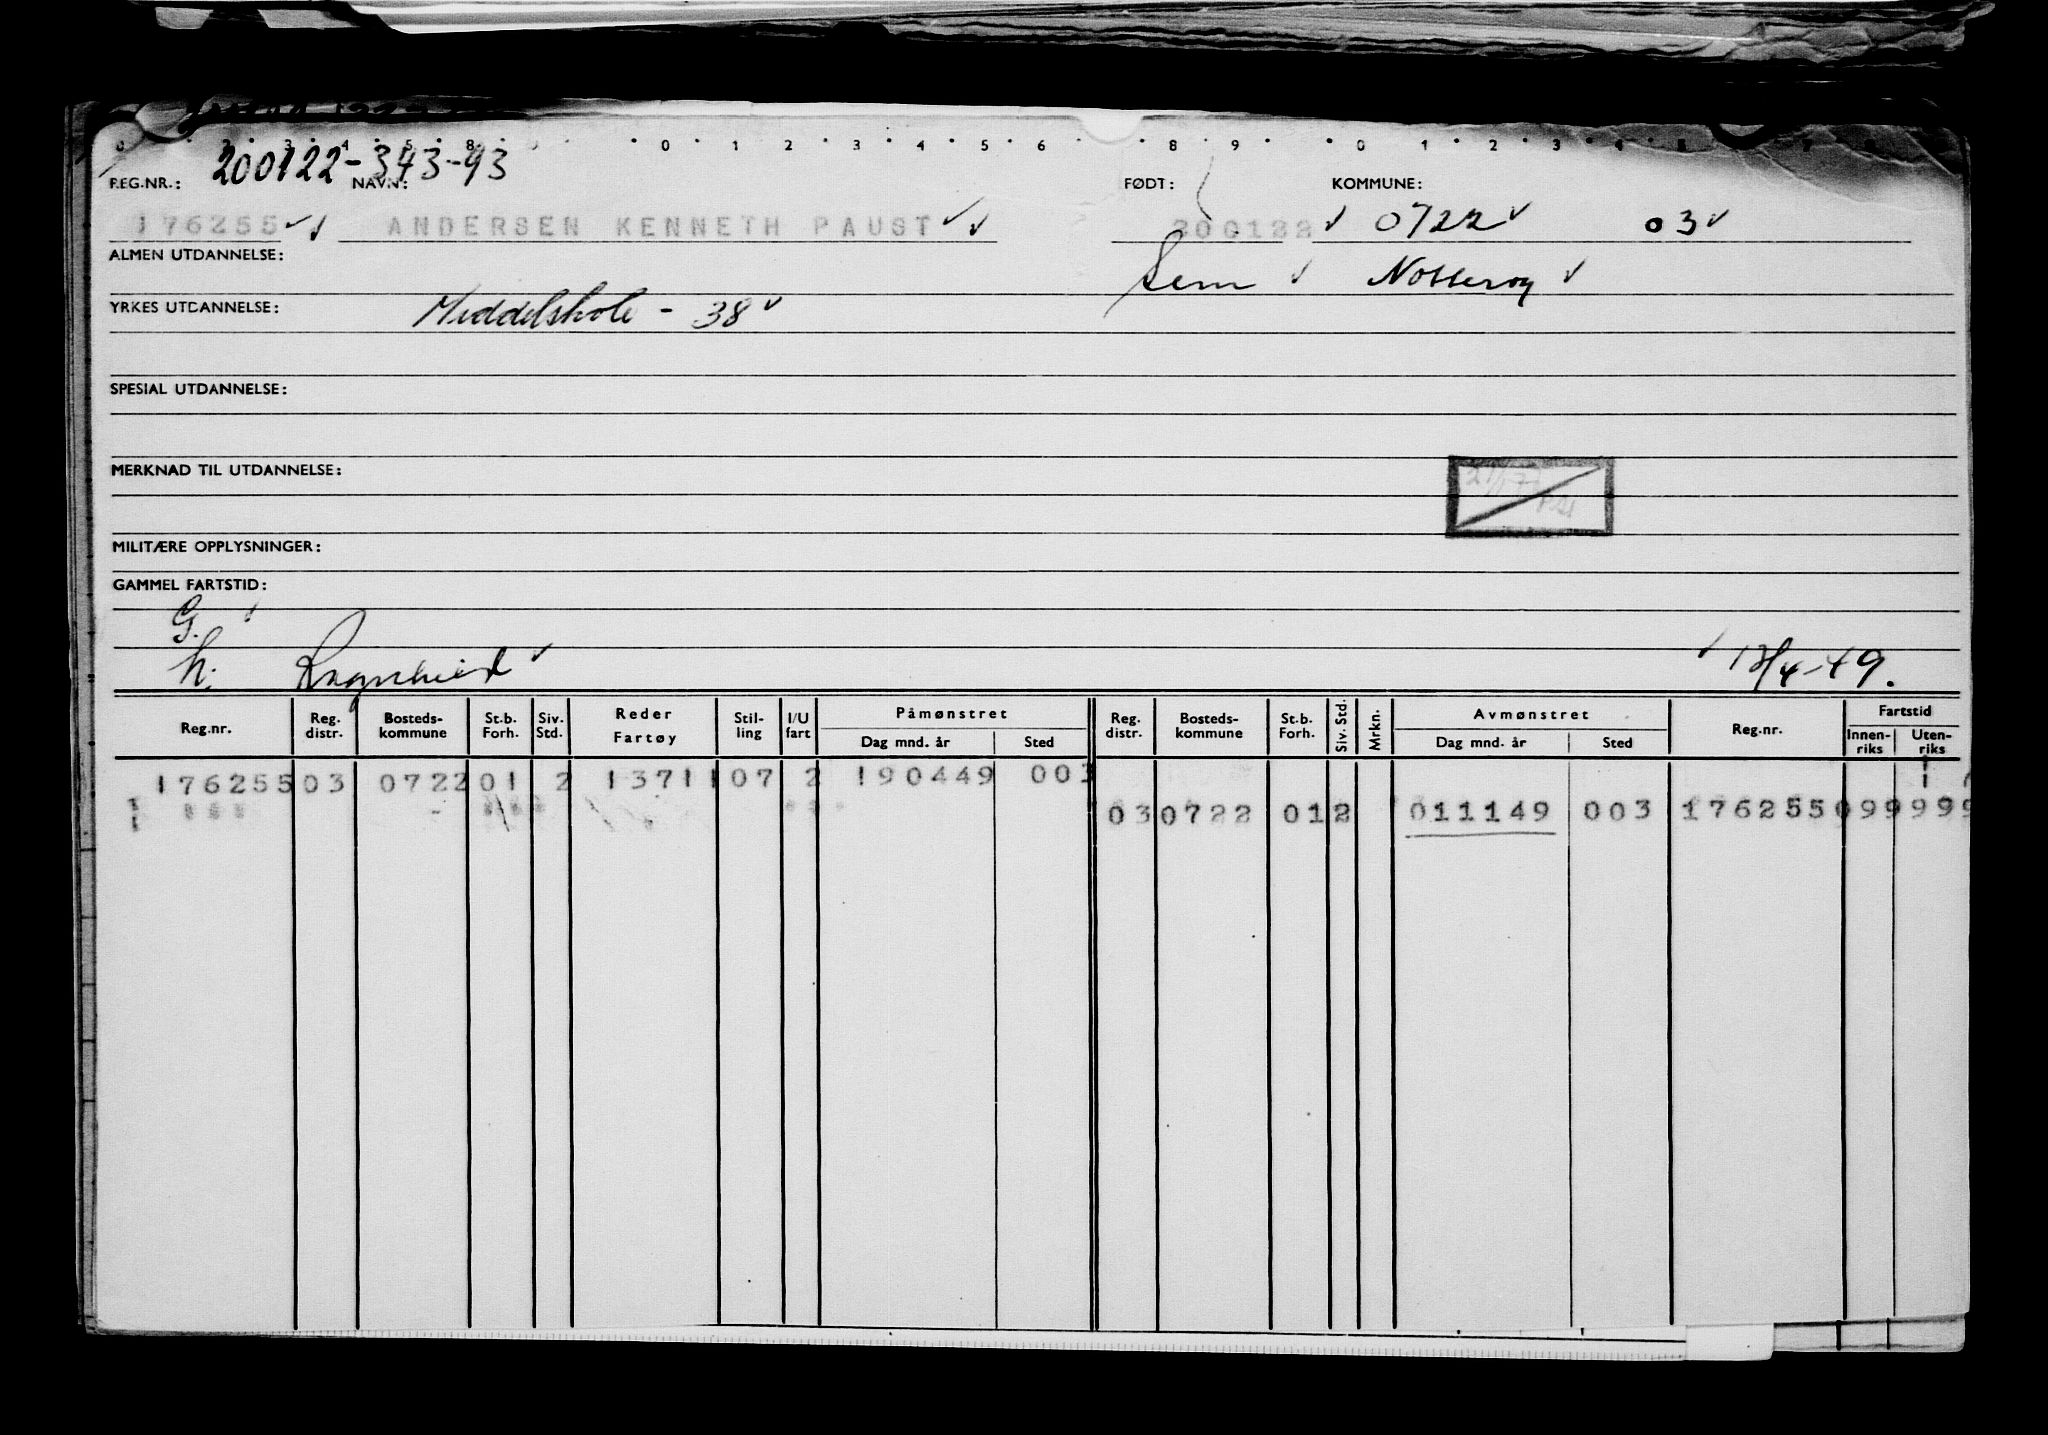 200122-343-93
REG.NR.: NAVN: FØDT: KOMMUNE:
176255 ANDERSEN KENNETH PAUST 200122 0722 03
ALMEN UTDANNELSE: Sem Nøtterøy
YRKES UTDANNELSE: Middelskole - 38
SPESIAL UTDANNELSE:
MERKNAD TIL UTDANNELSE:
MILITÆRE OPPLYSNINGER:
GAMMEL FARTSTID:
G.
h: Ragnhild 13/4-49.
Reg.nr. Reg. distr. Bosteds- kommune St.b. Forh. Siv. Std. Reder Fartøy Stil- ling I/U fart Påmønstret Dag mnd. år Sted Reg. distr. Bosteds- kommune St.b. Forh. Siv. Std. Mrkn. Avmønstret Dag mnd. år Sted Reg.nr. Fartstid Innen- riks Uten- riks
176255 03 0722 01 2 13711 07 2 190449 003
03 0722 01 2 011149 003 176255 099 999